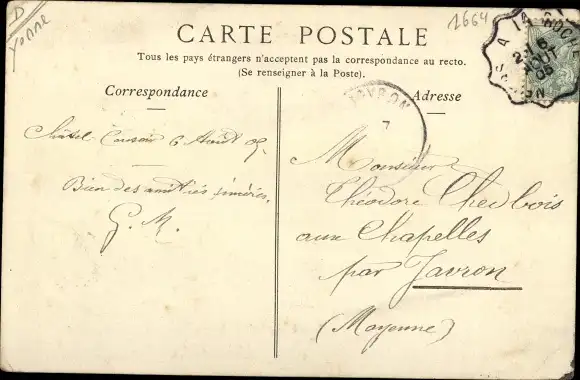 D
Yonne
1664
CARTE POSTALE
Tous les pays étrangers n'acceptent pas la correspondance au recto.
(Se renseigner à la Poste).
Correspondance
Adresse
JAVRON
7
A LA ROCHE
6
AOUT
Châtel Censoir 6 Août 05.
Bien des amitiés sincères,
G. M.
Monsieur
Théodore Chedbois
aux Chapelles
par Javron
(Mayenne)